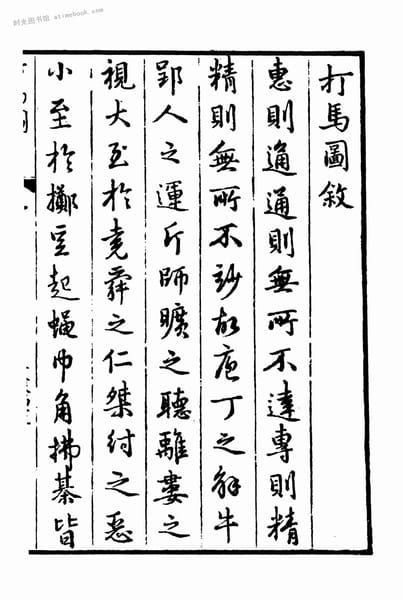 时光图书馆 atimebook.com
打馬圖敘
惠則通通則無所不達專則精
精則無所不妙故庖丁之解牛
郢人之運斤師曠之聽離婁之
視大至於堯舜之仁桀紂之惡
小至於擲豆起蠅巾角拂棊皆